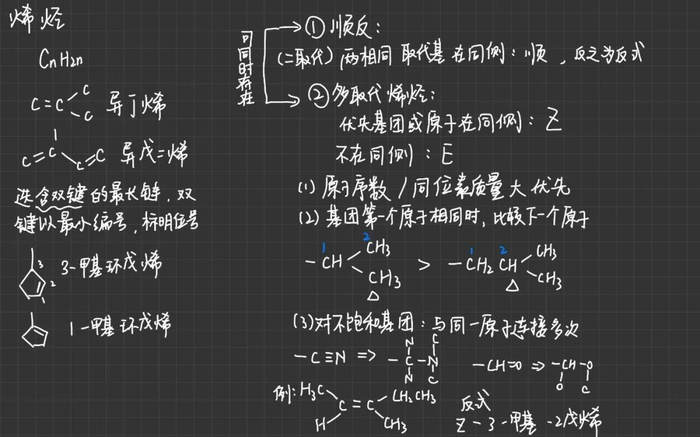 烯烃
CnH2n
C=C C C 异丁烯
C=C C C=C 异戊=烯
选含双键的最长链，双
键以最小编号，标明位号
3 2 3-甲基环戊烯
1-甲基环戊烯
可同时存在
① 顺反：
(二取代) 两相同取代基在同侧：顺，反之为反式
② 多取代烯烃：
优先基团或原子在同侧：Z
不在同侧：E
(1) 原子序数/同位素质量大优先
(2) 基团第一个原子相同时，比较下一个原子
1 2 1 2
-CH CH3 CH3 > -CH2 CH CH3 CH3
△ △
(3) 对不饱和基团：与同一原子连接多次
-C≡N => -C-N N N C C -CH=O => -CH-O O C
例：H3C H C=C CH2CH3 CH3
反式
Z-3-甲基-2戊烯